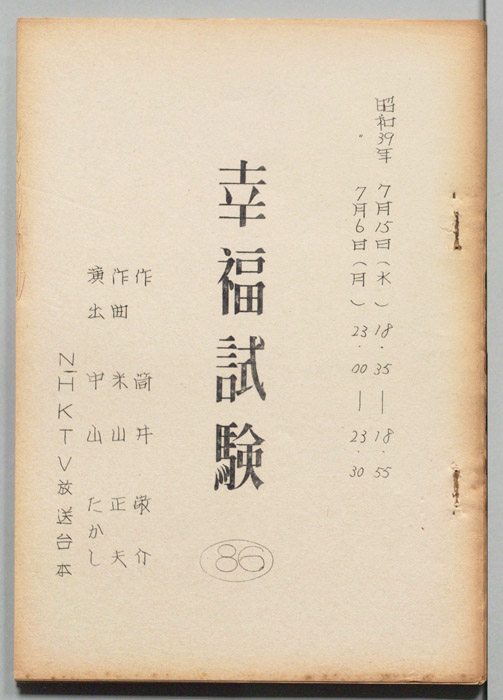 昭和39年 7月15日(水) 18.35―18.55
7月6日(月) 23.00―23.30
幸福試験
86
作 筒井敬介
作曲 米山正夫
演出 中山たかし
NHKTV放送台本